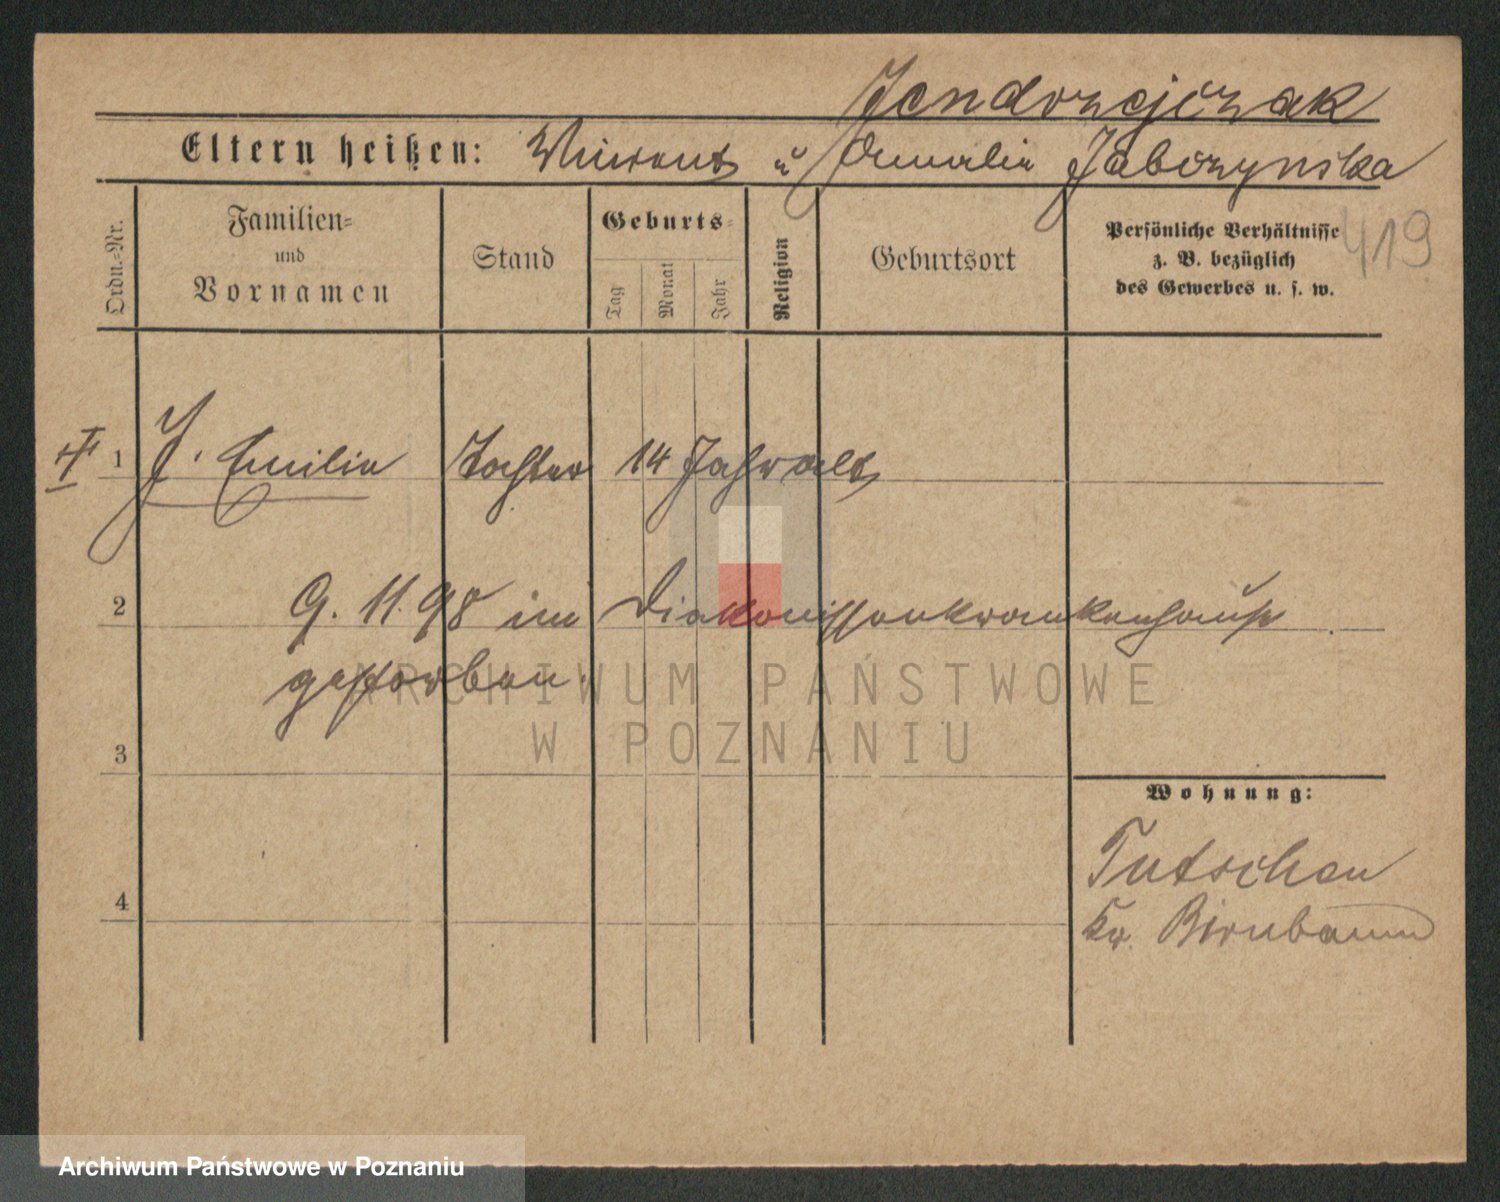 Jendrzejczak
Eltern heißen: Vincent u Amalie Jabczynska
419
Ordn.-Nr.
Familien-
und
Vornamen
Stand
Geburts-
Tag
Monat
Jahr
Religion
Geburtsort
Persönliche Verhältnisse
z. B. bezüglich
des Gewerbes u. s. w.
1 J. Emilie Tochter 14 Jahr alt
2 9. 11. 98 im Diakonissenkrankenhause
gestorben.
ARCHIWUM PAŃSTWOWE
W POZNANIU
3
Wohnung:
Tutschen
4
Kr. Birnbaum
Archiwum Państwowe w Poznaniu